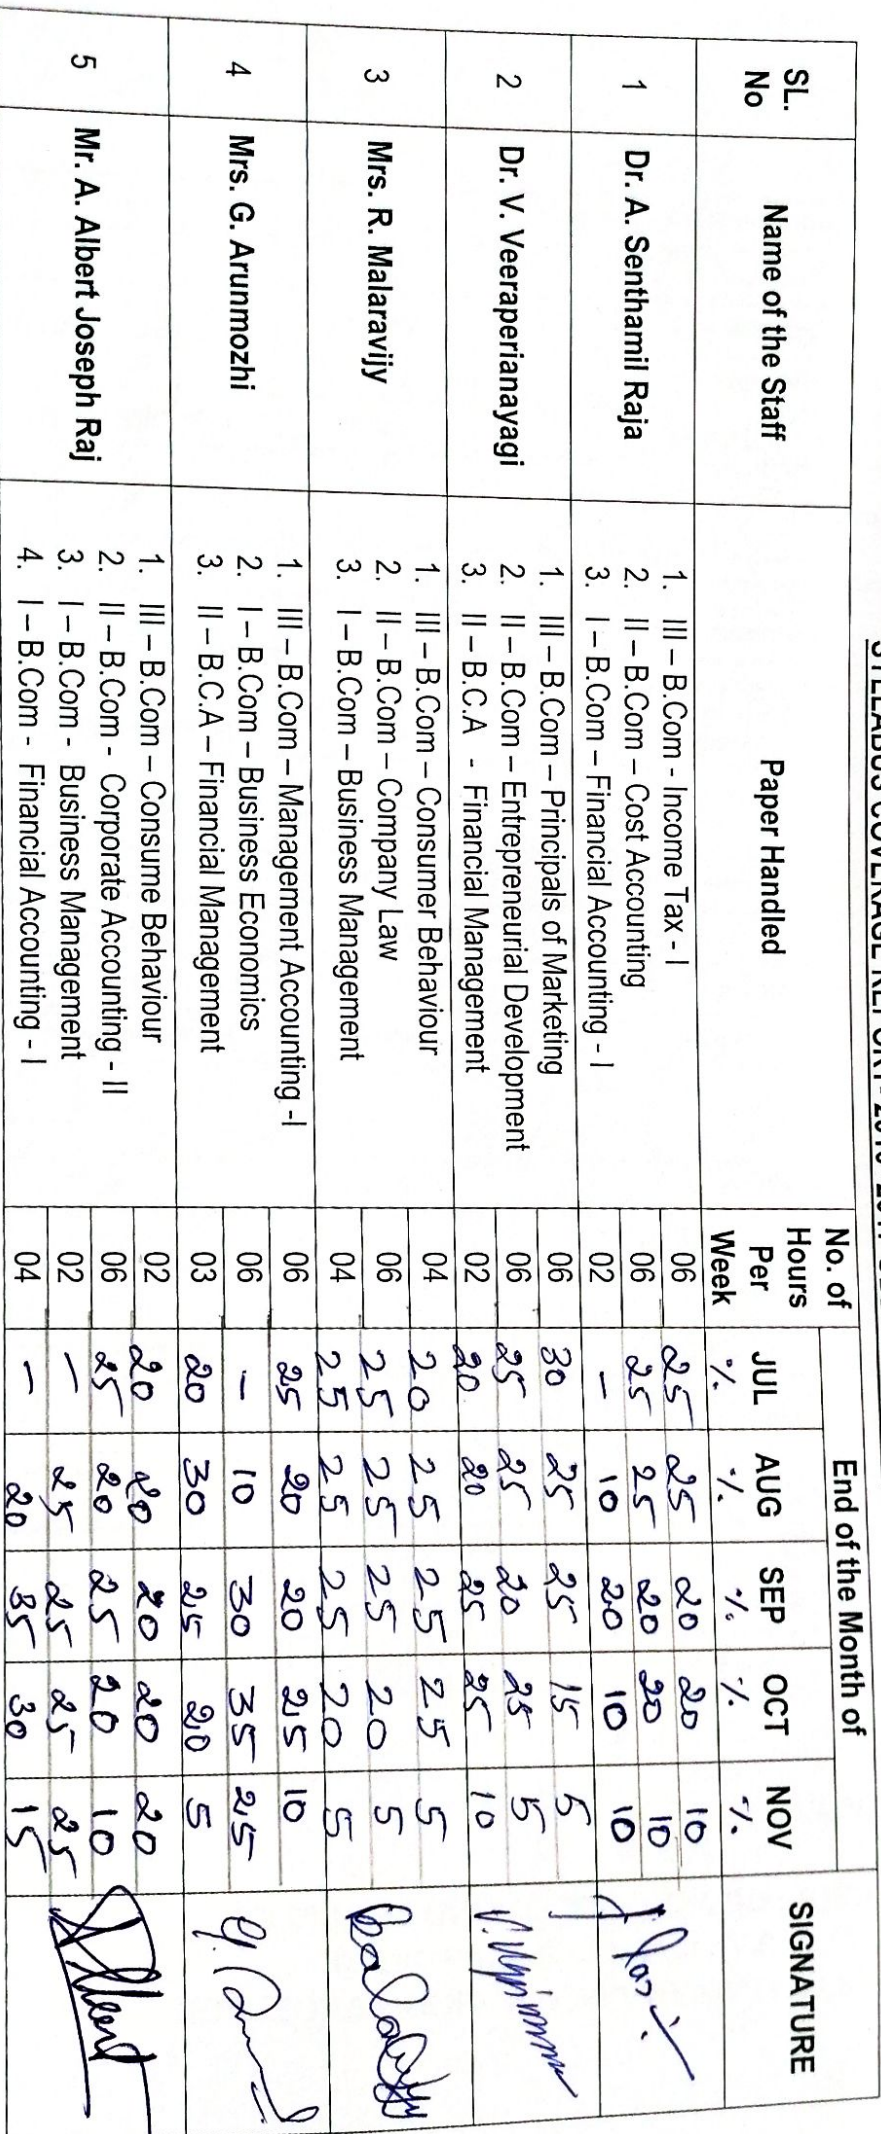 SYLLABUS COVERAGE REPORT
SL. No | Name of the Staff | Paper Handled | No. of Hours Per Week | End of the Month of | SIGNATURE
JUL % | AUG % | SEP % | OCT % | NOV %
1 | Dr. A. Senthamil Raja
1. III – B.Com - Income Tax - I | 06 | 25 | 25 | 20 | 20 | 10
2. II – B.Com – Cost Accounting | 06 | 25 | 25 | 20 | 20 | 10
3. I – B.Com – Financial Accounting - I | 02 | – | 10 | 20 | 10 | 10
2 | Dr. V. Veeraperianayagi
1. III – B.Com – Principals of Marketing | 06 | 30 | 25 | 25 | 15 | 5
2. II – B.Com – Entrepreneurial Development | 06 | 25 | 25 | 20 | 25 | 5
3. II – B.C.A - Financial Management | 02 | 20 | 20 | 25 | 25 | 10
3 | Mrs. R. Malaravijy
1. III – B.Com – Consumer Behaviour | 04 | 20 | 25 | 25 | 25 | 5
2. II – B.Com – Company Law | 06 | 25 | 25 | 25 | 20 | 5
3. I – B.Com – Business Management | 04 | 25 | 25 | 25 | 20 | 5
4 | Mrs. G. Arunmozhi
1. III – B.Com – Management Accounting -I | 06 | 25 | 20 | 20 | 25 | 10
2. I – B.Com – Business Economics | 06 | – | 10 | 30 | 35 | 25
3. II – B.C.A – Financial Management | 03 | 20 | 30 | 25 | 20 | 5
5 | Mr. A. Albert Joseph Raj
1. III – B.Com – Consume Behaviour | 02 | 20 | 20 | 20 | 20 | 20
2. II – B.Com - Corporate Accounting - II | 06 | 25 | 20 | 25 | 20 | 10
3. I – B.Com - Business Management | 02 | – | 25 | 25 | 25 | 25
4. I – B.Com - Financial Accounting - I | 04 | – | 20 | 35 | 30 | 15